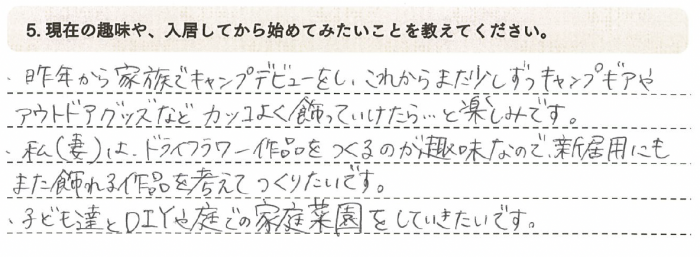 5. 現在の趣味や、入居してから始めてみたいことを教えてください。
・昨年から家族でキャンプデビューをし、これからまた少しずつキャンプギアや
アウトドアグッズなど カッコよく飾っていけたら…と楽しみです。
・私(妻)は、ドライフラワー作品をつくるのが趣味なので、新居用にも
また飾れる作品を考えてつくりたいです。
・子ども達とDIYや庭での家庭菜園をしていきたいです。